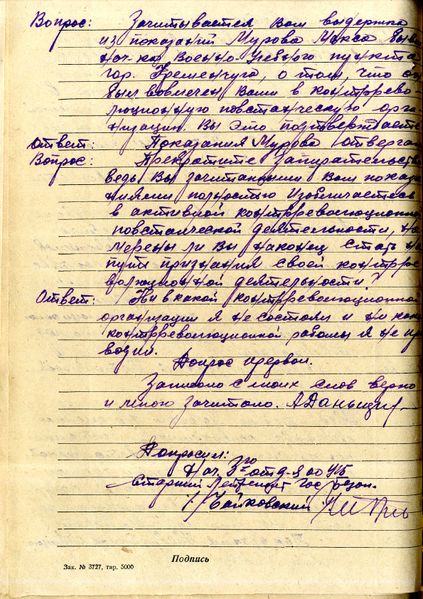 Вопрос: Зачитывается Вам выдержка
из показаний Мурова Макса быв.
нач-ка Военно Учебного пункта
гор. Кременчуга, о том, что он
был вовлечен Вами в контррево-
люционную повстанческую орга-
низацию. Вы это подтверждаете
Ответ: Показания Мурова отвергаю
Вопрос: Прекратите запирательство
ведь Вы зачитанными Вам показа-
ниями полностью изобличаетесь
в активной контрреволюционно
повстанческой деятельности, на-
мерены ли Вы наконец стать на
путь признания своей контррев
волюционной деятельности?
Ответ: Ни в какой контрреволюционной
организации я не состоял и ни какой
контрреволюционной работы я не про
водил.
Допрос прерван.
Записано с моих слов верно
и мною зачитано. АДаньшин
Допросил:
Нач. 3го отд-я ОО УГБ
Старший Лейтенант Гос Безоп.
/Чайковский/
Подпись
Зак. № 3727, тир. 5000